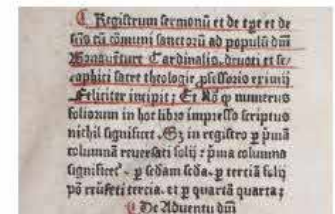 ⁋ Registrum sermonū et de tp̄e et de
sc̄is cū cōmuni sanctorū ad populū dm̄
Bonauēture Cardinalis, deuoti et se⸗
raphici sacre theologie, p̄fessorio eximij
Feliciter incipit; Et Nō ꝙ numerus
foliorum in hoc libro impresso scriptus
nichil significet. Sꝫ in registro ꝑ pͥmā
columnā reuersati folij : pͥma columna
significet᷑. ꝑ sc̄dam sc̄da. ꝑ tercia folij
pō rn̄seti tercia. et ꝑ quartā quarta;
⁋ De Aduentu dn̄i